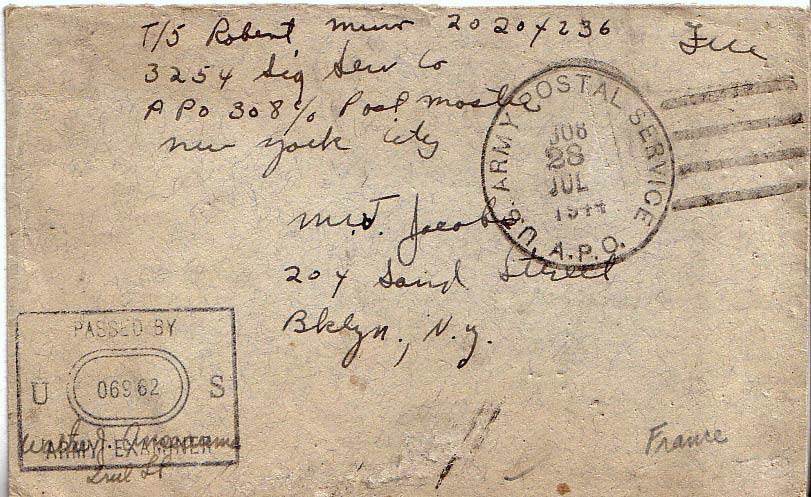 T/5 Robert Muir 20204236
3254 Sig Serv Co
APO 308 % Postmaster
New York City
Free
U.S. ARMY POSTAL SERVICE
28
JUL
1944
A.P.O.
M.J. Jacobs
204 Sand Street
Bklyn., N.Y.
PASSED BY
U 06962 S
ARMY EXAMINER
France